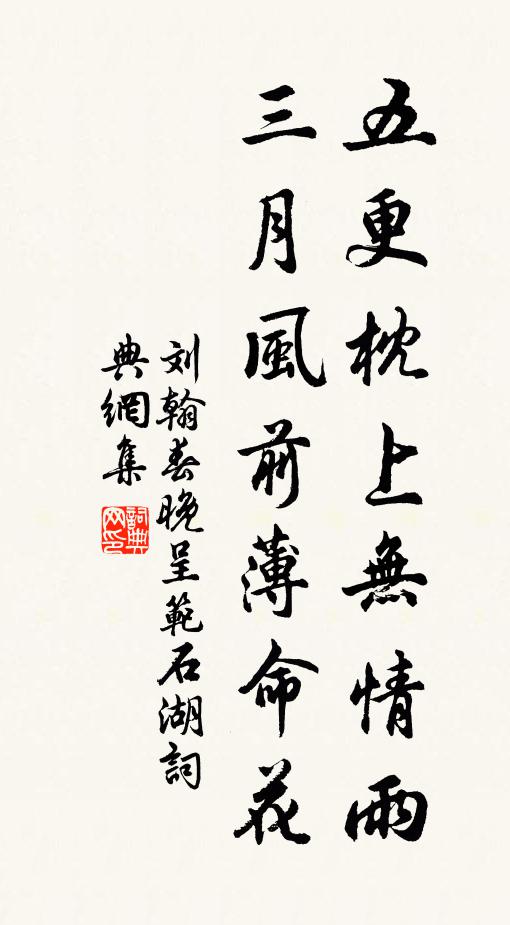 五更枕上無情雨
三月風前薄命花
刘翰春晚呈範石湖詞
典網集
詞典網印